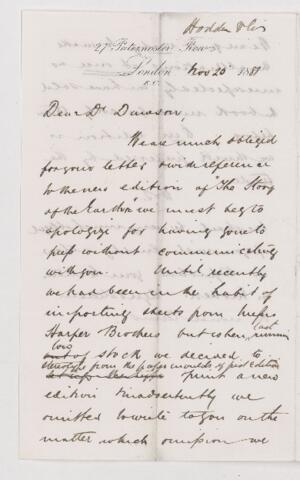 Hodder & Co
27, Paternoster Row,
London
E.C.
Nov 23 1881
Dear Dr Dawson,
We are much obliged
for your letter & with reference
to the new edition of "The Story
of the Earth" we must beg to
apologize for having gone to
press without communicating
with you. Until recently
we had been in the habit of
importing sheets from Messrs
Harper Brothers but when last running
low
out of stock we decided to
electros from the paper moulds of first edition
print a new
edition Inadvertently we
omitted to write to you on the
matter which omission we